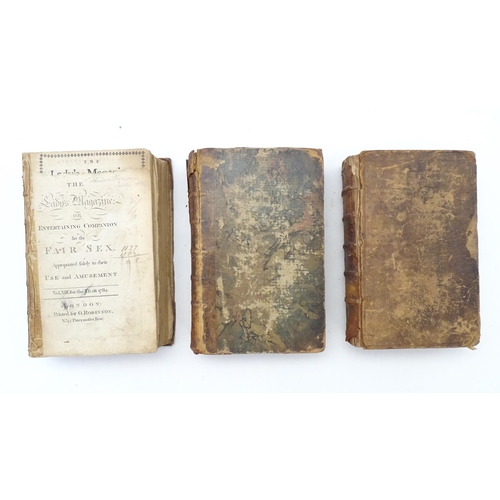 THE
Lady's Magazi
THE
Lady's Magazine
OR
ENTERTAINING COMPANION
for the
FAIR SEX,
Appropriated solely to their
USE and AMUSEMENT
LONDON;
Printed for G. ROBINSON,
Paternoster Row